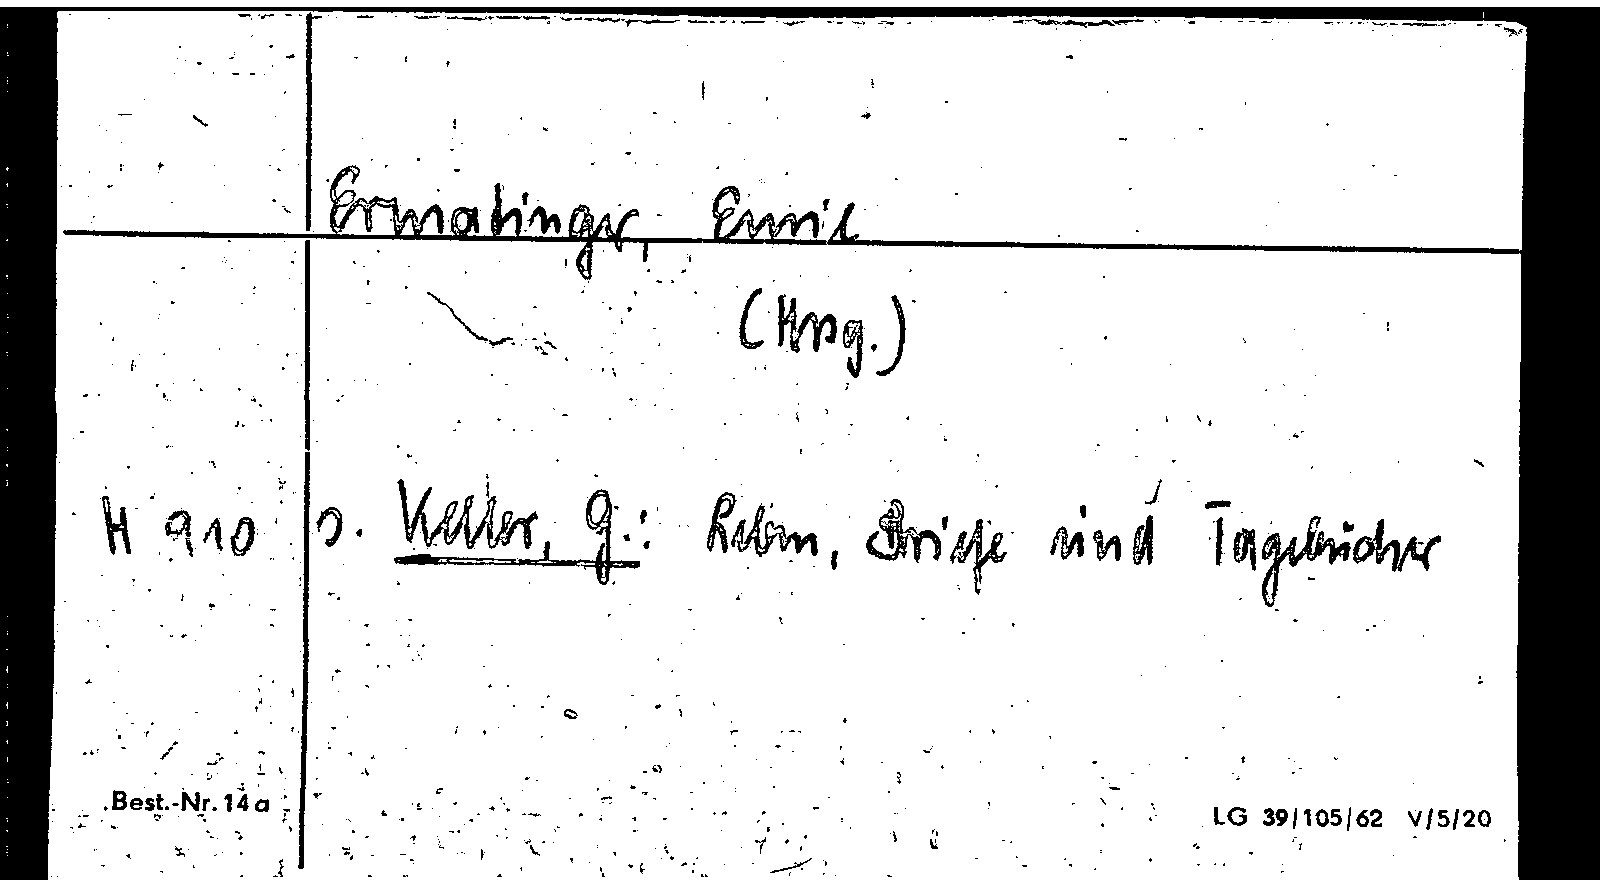 Ermatinger, Emil
(Hrsg.)
H 910 s. Keller, G.: Leben, Briefe und Tagebücher
Best.-Nr. 14a
LG 39/105/62 V/5/20